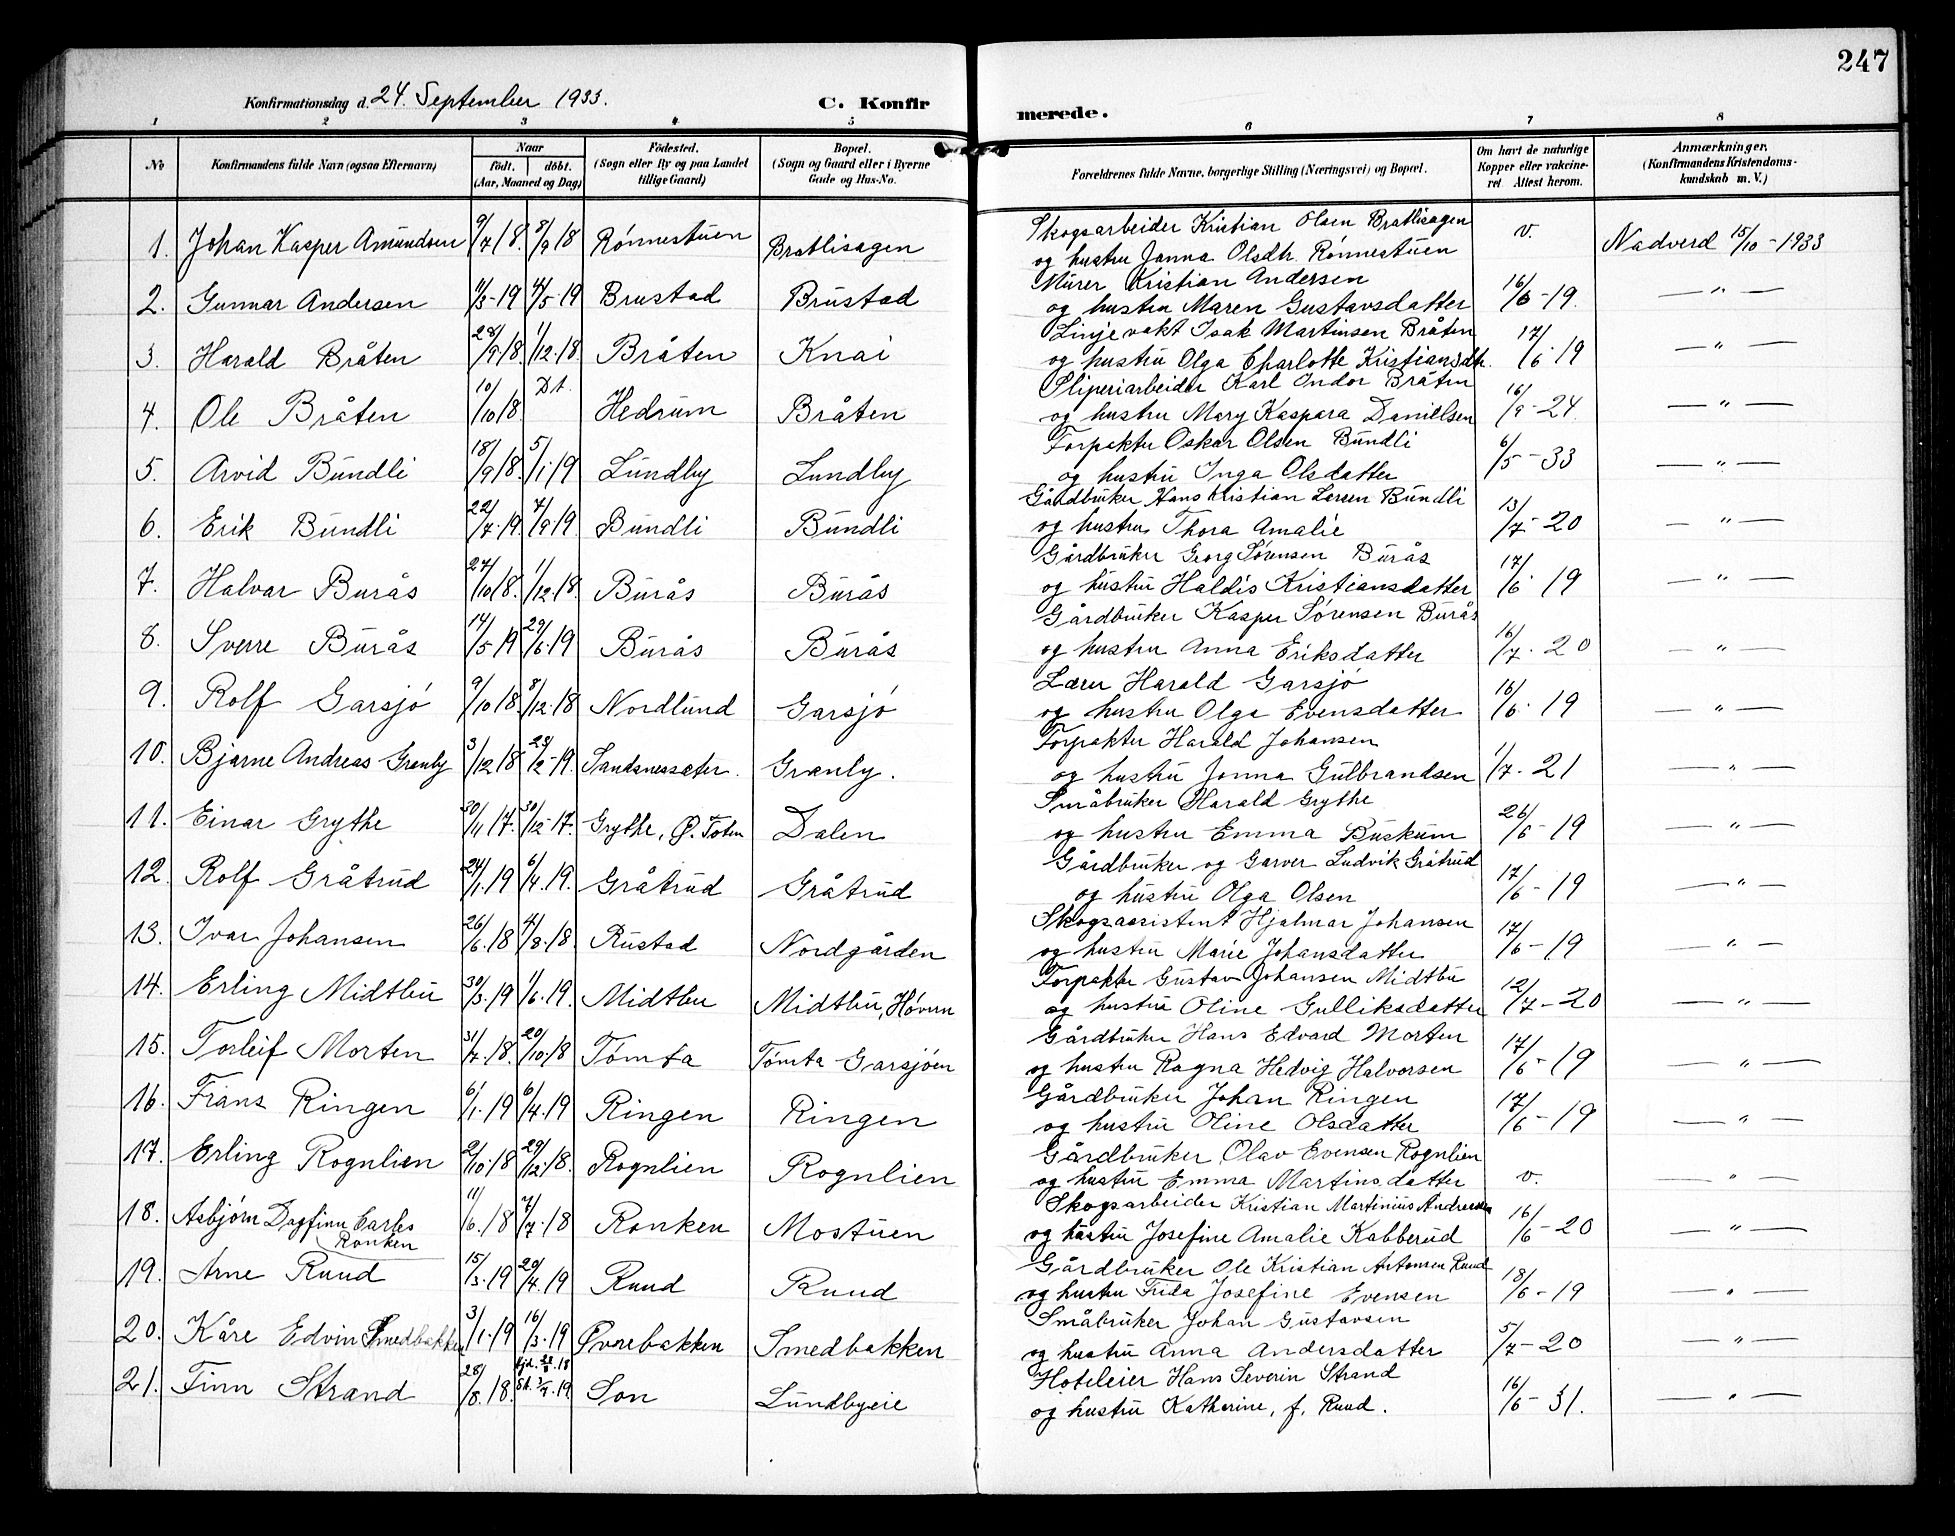 247
Konfirmationsdag d. 24. September 1933.
C. Konfirmerede.
1 2 3 4 5 6 7 8
No
Konfirmandens fulde Navn (ogsaa Efternavn)
Naar
født. døbt.
(Aar, Maaned og Dag)
Fødested.
(Sogn eller By og paa Landet
tillige Gaard)
Bopæl.
(Sogn og Gaard eller i Byerne
Gade og Hus-No.
Forældrenes fulde Navne, borgerlige Stilling (Næringsvei) og Bopæl.
Om havt de naturlige
Kopper eller vakcine-
ret Attest herom.
Anmærkninger.
(Konfirmandens Kristendoms-
kundskab m. V.)
1. Johan Kasper Amundsen 9/7 18. 8/9 18 Rønnestuen Bratlisagen Skogsarbeider Kristian Olsen Bratlisagen v. Nadverd 15/10-1933
og hustru Janna Olsdtr. Rønnestuen
2. Gunnar Andersen 4/5-19 Brustad Brustad Murer Kristian Andersen 16/6-19. — " —
og hustru Maren Gustavsdatter
3. Harald Bråten 28/9 18. 1/12.18. Bråten Knai Linjevakt Isak Martinsen Bråten 17/6.19 — " —
og hustru Olga Charlotte Kristiansdtr.
4. Ole Bråten 10/10 18 Dt. Hedrum Bråten Sliperiarbeider Karl Ondor Bråten 16/9-24. — " —
og hustru Mary Kaspara Daniellsen
5. Arvid Bundli 18/9 18. 5/1 19 Lundby Lundby Forpakter Oskar Olsen Bundli 6/5-33 — " —
og hustru Inga Olsdatter
6. Erik Bundli 22/7.19. 7/9 19. Bundli Bundli Gårdbruker Hans Kristian Larsen Bundli 13/7-20 — " —
og hustru Thora Amalie
7. Halvar Burås 27/10 18. 1/12.18. Burås Burås Gårdbruker Georg Sørensen Burås 17/6.19 — " —
og hustru Haldis Kristiansdatter
8. Sverre Burås 14/5 19 29/6.19 Burås Burås Gårdbruker Kasper Sørensen Burås 16/7.20 — " —
og hustru Anna Eriksdatter
9. Rolf Garsjø 9/10 18. 8/12.18 Nordlund Garsjø Lærer Harald Garsjø 16/6.19 — " —
og hustru Olga Evensdatter
10. Bjarne Andreas Granly 3/12 18 23/2-19. Sandsnessæter. Granly. Forpakter Harald Johansen 1/7.21 — " —
og hustru Janna Gulbrandsen
11. Einar Grythe 30/11 17. 30/12-17. Grythe, Ø. Toten Dalen Småbruker Harald Grythe 26/6-19 — " —
og hustru Emma Buskum
12. Rolf Gråtrud 24/1.19 6/4.19. Gråtrud Gråtrud Gårdbruker og Garver Ludvik Gråtrud 17/6-19 — " —
og hustru Olga Olsen
13. Ivar Johansen 26/6.18 4/8.18. Rustad Nordgården Skogsassistent Hjalmar Johansen 17/6-19 — " —
og hustru Marie Johansdatter
14. Erling Midtbu 30/3.19 1/6.19. Midtbu Midtbu, Høvern Forpakter Gustav Johansen Midtbu 12/7-20 — " —
og hustru Oline Gulliksdatter
15. Torleif Morten 31/7.18. 20/10.18 Tømta Tømta Garsjøen Gårdbruker Hans Edvard Morten 17/6-19 — " —
og hustru Ragna Hedvig Halvorsen
16. Frans Ringen 6/1.19 6/4.19 Ringen Ringen Gårdbruker Johan Ringen 17/6-19 — " —
og hustru Oline Olsdatter
17. Erling Rognlien 2/10.18 29/12.18. Rognlien Rognlien Gårdbruker Olav Evensen Rognlien v. — " —
og hustru Emma Martinsdatter
18. Asbjørn Dagfinn Carles 11/6.18 7/7.18 Ronken Mostuen Skogsarbeider Kristian Martinius Andersen 16/6-20 — " —
Ronken og hustru Josefine Amalie Kabberud
19. Arne Ruud 15/3.19 20/4.19 Ruud Ruud Gårdbruker Ole Kristian Antonsen Ruud 18/6-19 — " —
og hustru Frida Josefine Evensen
20. Kåre Edvin Smedbakken 3/1.19 16/3.19 Øvrebakken Smedbakken Småbruker Johan Gustavsen 5/7-20 — " —
og hustru Anna Andersdatter
21. Finn Strand 28/8.18. Son Lundbyeie Hoteleier Hans Severin Strand 16/6-31. — " —
og hustru Katherine, f. Ruud.